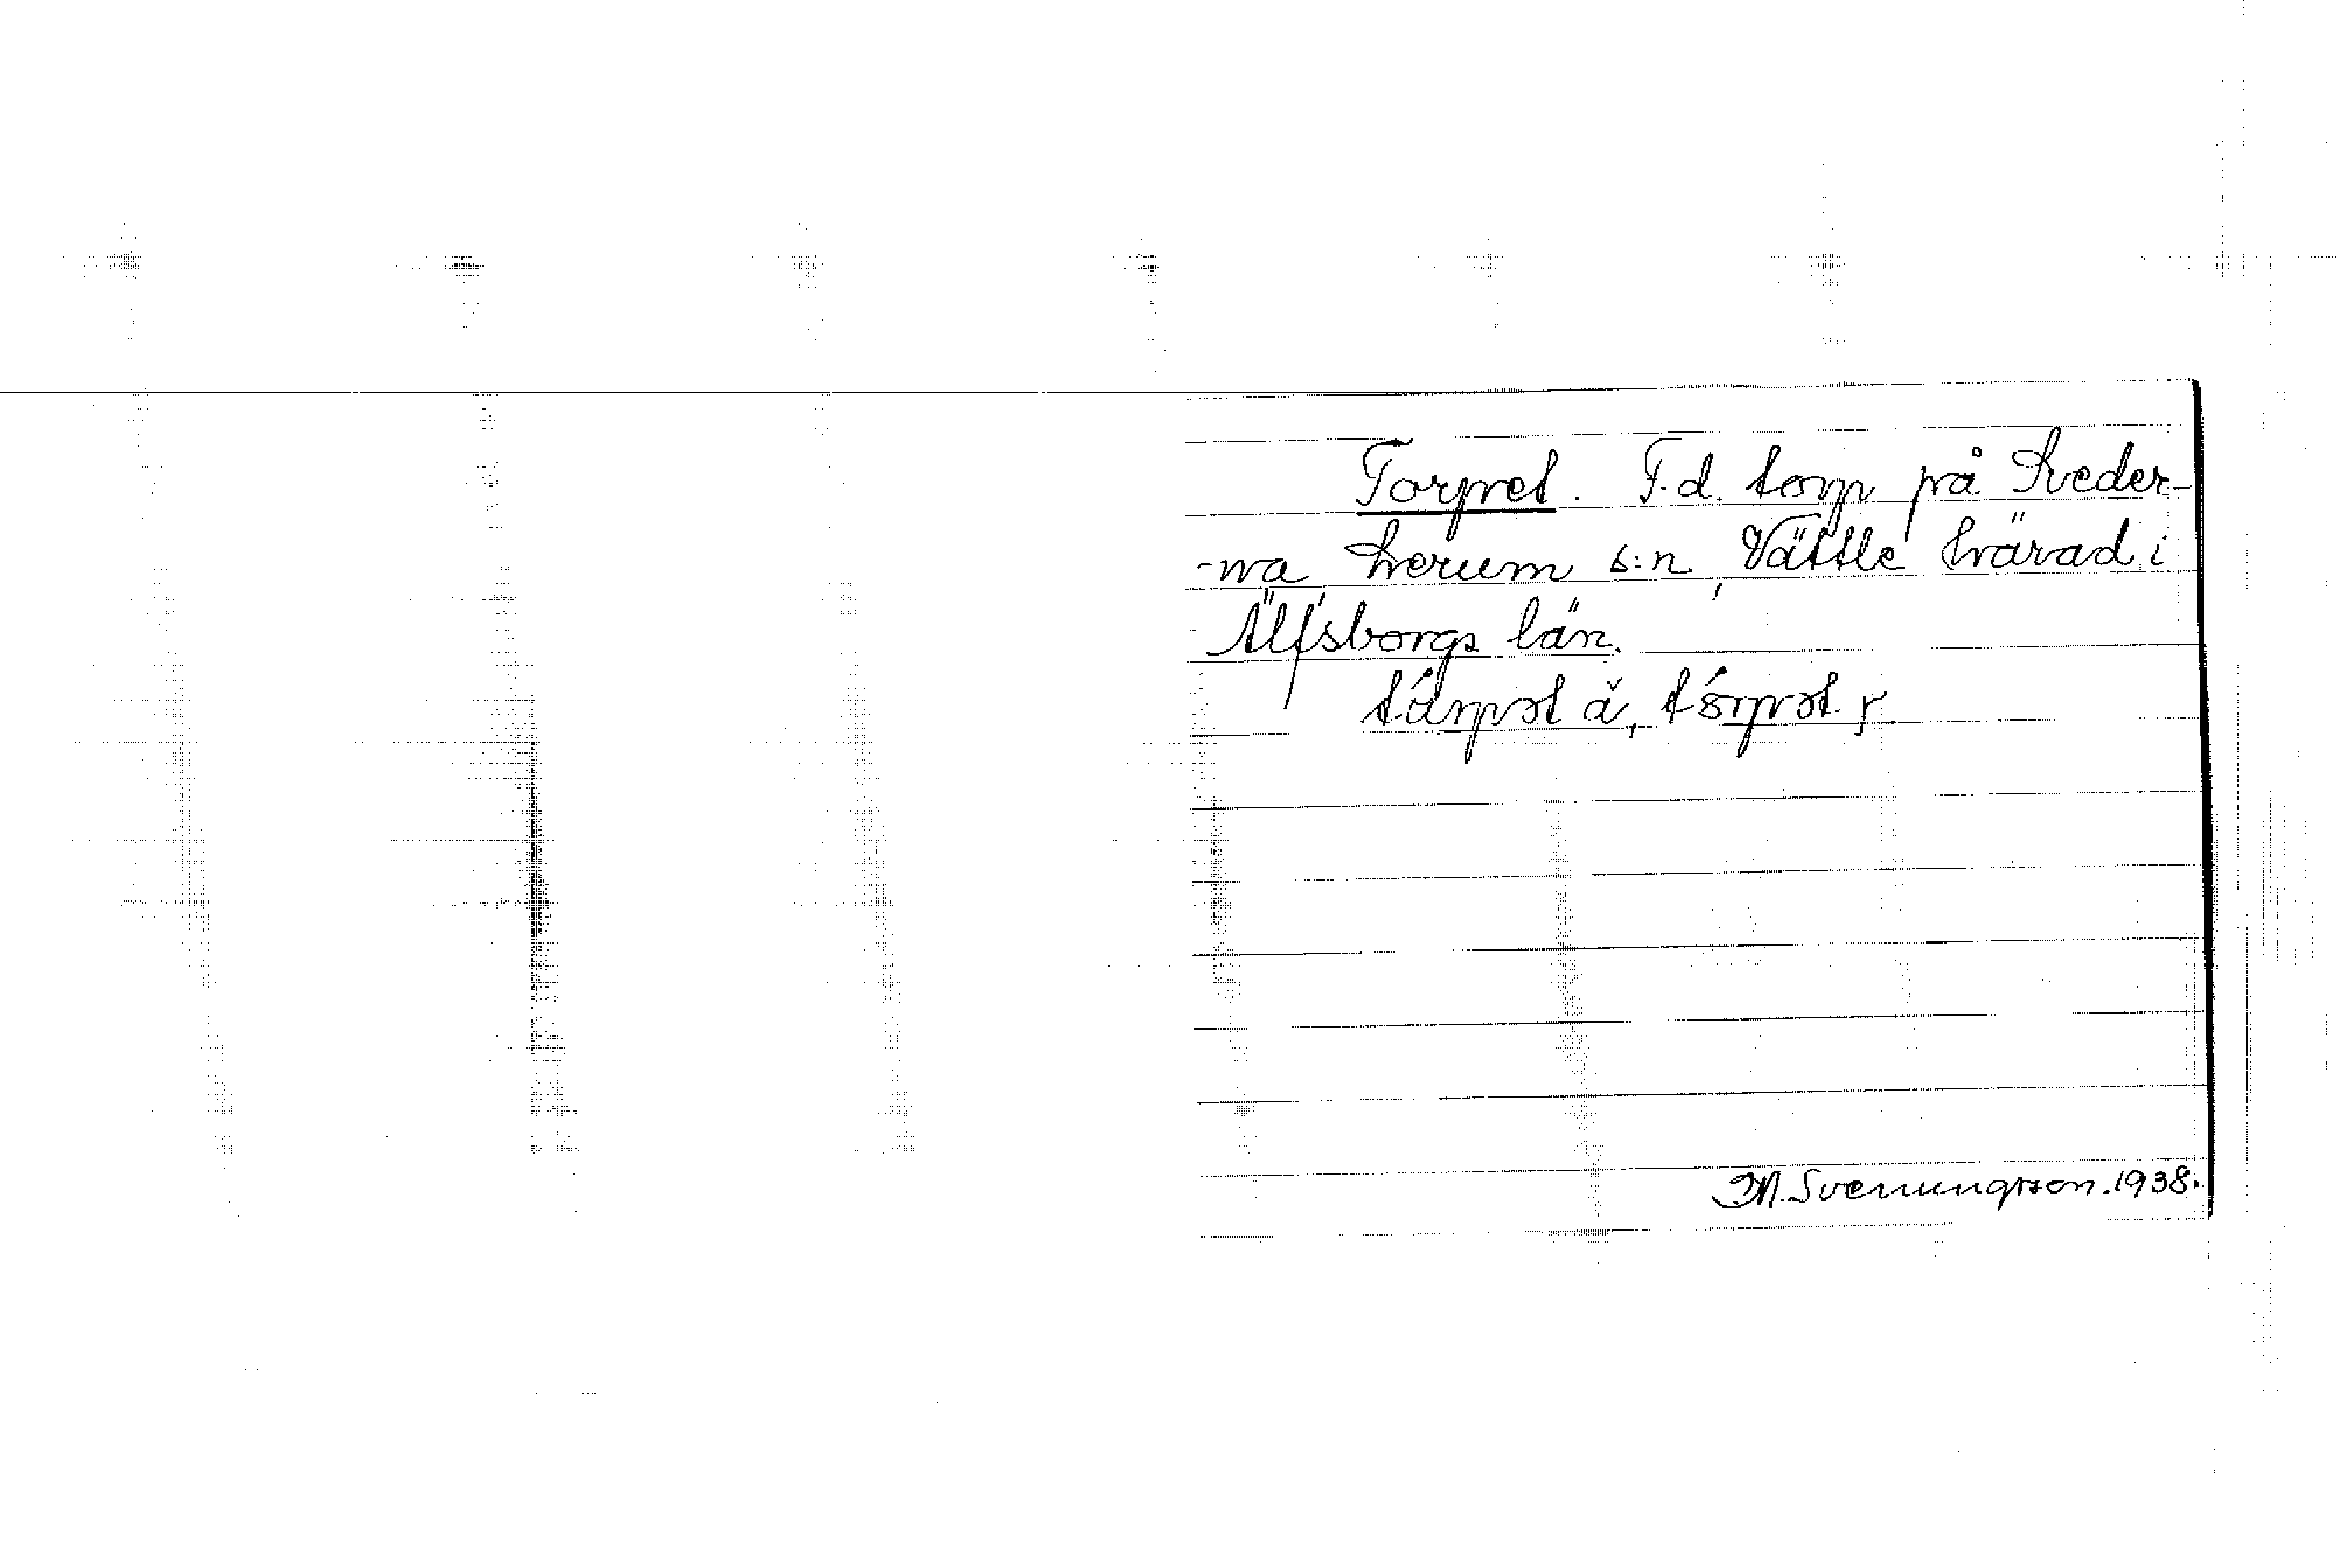 Torpet. F.d. torp på Sveder-
-na, Lerum s:n, Vättle härad i
Älfsborgs län.
tárpət ä, tórpət y
M. Svenungsson. 1938.